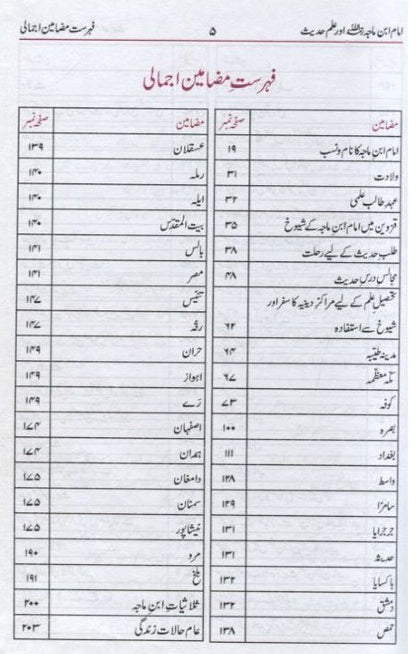 امام ابن ماجہ رحمہ اللہ اور علم حدیث ۵ فہرست مضامین اجمالی
فہرستِ مضامین اجمالی
مضامین صفحہ نمبر
امام ابن ماجہ کا نام و نسب ۱۹
ولادت ۳۱
عہد طالب علمی ۳۲
قزوین میں امام ابن ماجہ کے شیوخ ۳۵
طلبِ حدیث کے لیے رحلت ۳۸
مجالس درسِ حدیث ۴۸
تحصیل علم کے لیے مراکز دینیہ کا سفر اور
شیوخ سے استفادہ ۶۲
مدینہ طیبہ ۶۴
مکہ معظمہ ۶۷
کوفہ ۷۳
بصرہ ۱۰۰
بغداد ۱۱۱
واسط ۱۲۸
سامرا ۱۲۹
جرجرایا ۱۳۱
حدیثہ ۱۳۱
باکسایا ۱۳۲
دمشق ۱۳۲
حمص ۱۳۸
مضامین صفحہ نمبر
عسقلان ۱۳۹
رملہ ۱۴۰
ایلہ ۱۴۰
بیت المقدس ۱۴۰
بالس ۱۴۱
مصر ۱۴۱
تنیس ۱۴۷
رقہ ۱۴۷
حران ۱۴۹
اہواز ۱۴۹
رَے ۱۴۹
اصفہان ۱۷۴
ہمدان ۱۷۴
دامغان ۱۷۵
سمنان ۱۷۵
نیشاپور ۱۷۵
مرو ۱۹۰
بلخ ۱۹۱
ثلاثیاتِ ابنِ ماجہ ۲۰۰
عام حالات زندگی ۲۰۳